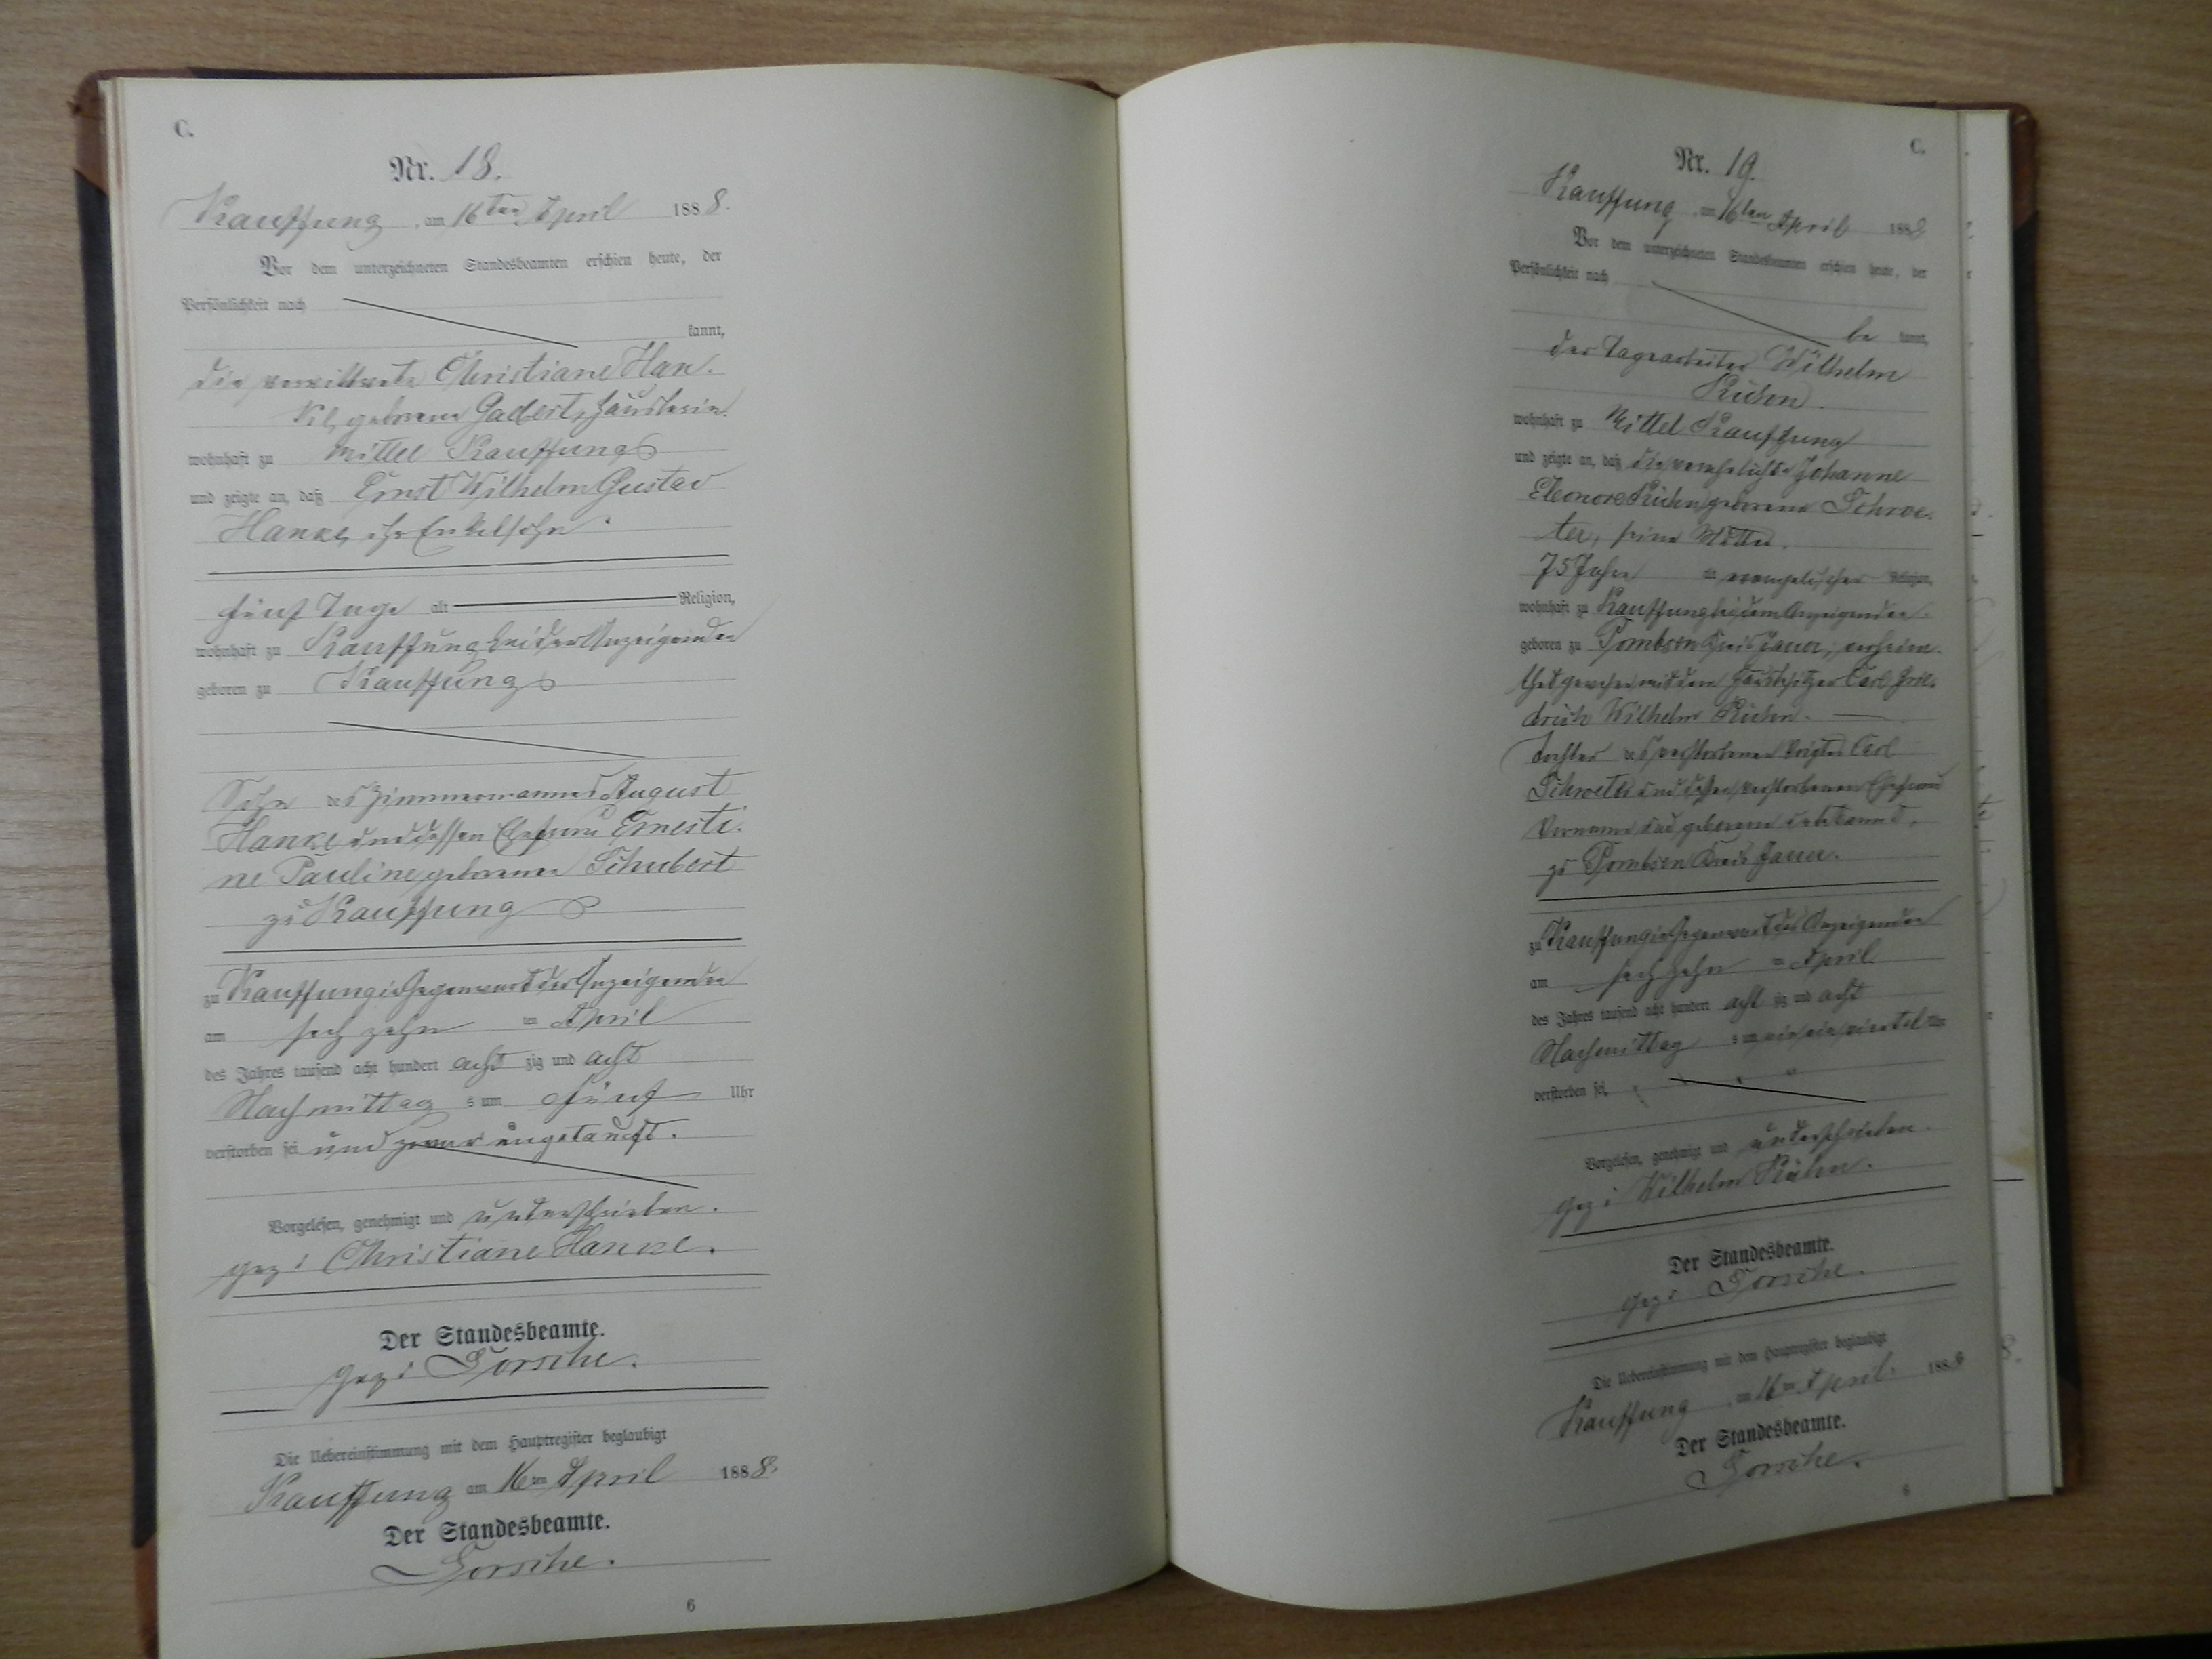 C.
Nr. 18.
Kauffung, am 16ten April 1888.
Vor dem unterzeichneten Standesbeamten erschien heute, der
Persönlichkeit nach
kannt,
die verwittwete Christiane Han-
ke, geborene Gaebert, Häuslerin
wohnhaft zu Mittel Kauffung
und zeigte an, daß Ernst Wilhelm Gustav
Hanke, ihr Enkelsohn
fünf Tage alt Religion,
wohnhaft zu Kauffung bei der Anzeigenden
geboren zu Kauffung
Sohn des Zimmermannes August
Hanke und dessen Ehefrau Ernesti-
ne Pauline, geborenen Schubert
zu Kauffung
zu Kauffung in Gegenwart der Anzeigenden
am sechzehn ten April
des Jahres tausend acht hundert acht zig und acht
Nachmittag s um fünf Uhr
verstorben sei und zwar ungetauft.
Vorgelesen, genehmigt und unterschrieben.
gez: Christiane Hanke.
Der Standesbeamte.
gez:
Die Uebereinstimmung mit dem Hauptregister beglaubigt
Kauffung am 16ten April 1888.
Der Standesbeamte.
6
C.
Nr. 19.
Kauffung, am 16ten April 1888
Vor dem unterzeichneten Standesbeamten erschien heute, der
Persönlichkeit nach
be kannt,
der Tagearbeiter Wilhelm
Kühn.
wohnhaft zu Mittel Kauffung
und zeigte an, daß die verehelichte Johanne
Eleonore Kühn, geborene Schroe-
ter, seine Mutter.
75 Jahre alt evangelischer Religion,
wohnhaft zu Kauffung bei dem Anzeigenden.
geboren zu Pombsen Kreis Jauer, verheira-
thet gewesen mit dem Hausbesitzer Carl Frie-
drich Wilhelm Kühn.
Tochter des verstorbenen Voigtes Carl
Schroeter und dessen verstorbenen Ehefrau
Vorname und geborene unbekannt,
zu Pombsen Kreis Jauer.
zu Kauffung in Gegenwart des Anzeigenden
am sechzehn ten April
des Jahres tausend acht hundert acht zig und acht
Nachmittag s um ein viertel Uhr
verstorben sei
Vorgelesen, genehmigt und unterschrieben.
gez: Wilhelm Kühn.
Der Standesbeamte.
gez:
Die Uebereinstimmung mit dem Hauptregister beglaubigt
Kauffung, am 16ten April. 1888
Der Standesbeamte.